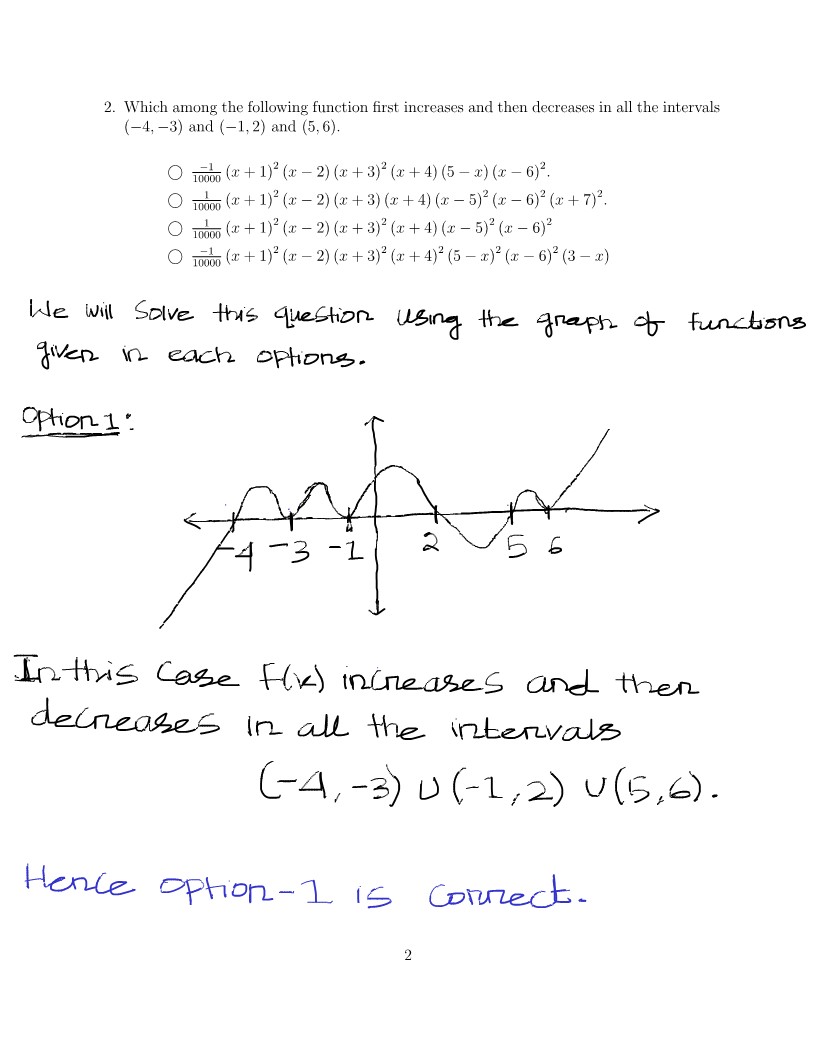 2. Which among the following function first increases and then decreases in all the intervals
(−4, −3) and (−1, 2) and (5, 6).
○ −1/10000 (x + 1)² (x − 2) (x + 3)² (x + 4) (5 − x) (x − 6)².
○ 1/10000 (x + 1)² (x − 2) (x + 3) (x + 4) (x − 5)² (x − 6)² (x + 7)².
○ 1/10000 (x + 1)² (x − 2) (x + 3)² (x + 4) (x − 5)² (x − 6)²
○ −1/10000 (x + 1)² (x − 2) (x + 3)² (x + 4)² (5 − x)² (x − 6)² (3 − x)
We will Solve this question using the graph of functions
given in each options.
Option 1:
-4 -3 -1 2 5 6
In this Case f(x) increases and then
decreases in all the intervals
(-4, -3) ∪ (-1, 2) ∪ (5, 6).
Hence option-1 is correct.
2